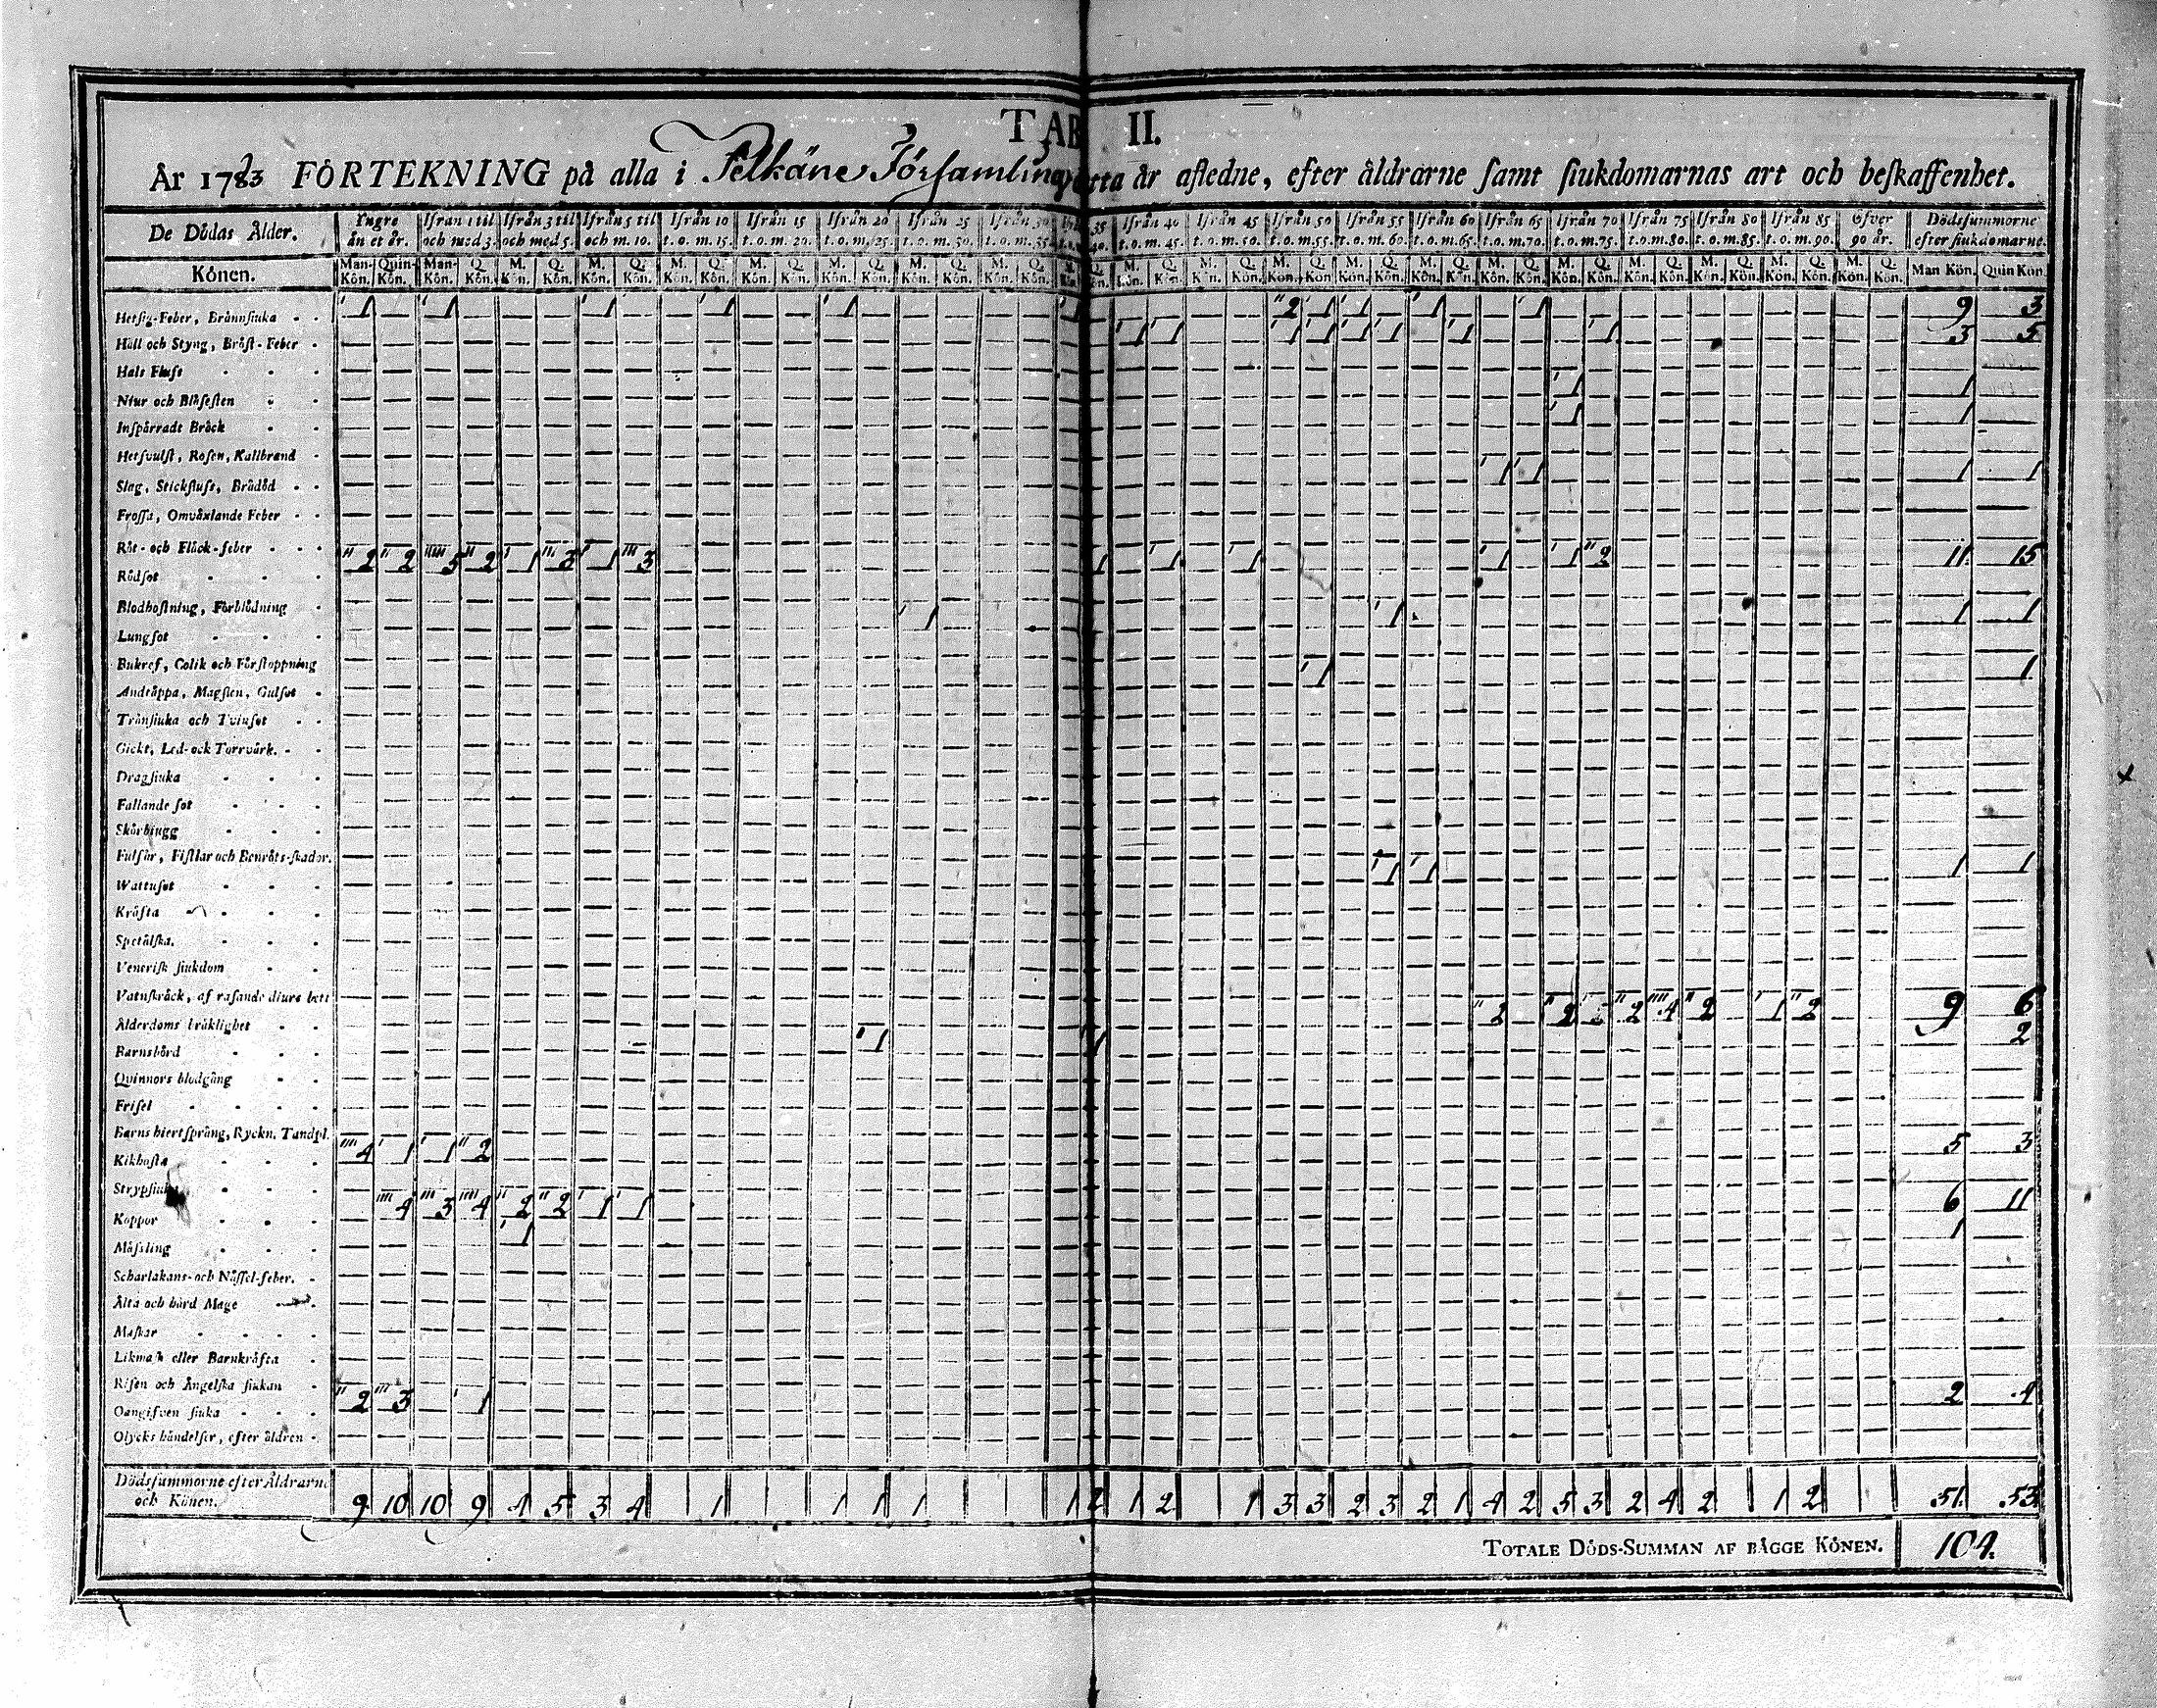 TAB II.
År 1783 FÖRTEKNING på alla i Pelkäne Församling detta år afledne, efter åldrarne samt siukdomarnas art och beskaffenhet.
De Dödas Ålder. Yngre än et år. Ifrån 1 til och med 3. Ifrån 3 til och med 5. Ifrån 5 til och m. 10. Ifrån 10 t.o.m. 15. Ifrån 15 t.o.m. 20. Ifrån 20 t.o.m. 25. Ifrån 25 t.o.m. 30. Ifrån 30 t.o.m. 35. 35 40. Ifrån 40 t.o.m. 45. Ifrån 45 t.o.m. 50. Ifrån 50 t.o.m. 55. Ifrån 55 t.o.m. 60. Ifrån 60 t.o.m. 65. Ifrån 65 t.o.m. 70. Ifrån 70 t.o.m. 75. Ifrån 75 t.o.m. 80. Ifrån 80 t.o.m. 85. Ifrån 85 t.o.m. 90. Öfver 90 år. Dödssummorne efter siukdomarne.
Könen. Man-Kön. Quin-Kön. Man-Kön. Q. Kön. M. Kön. Q. Kön. M. Kön. Q. Kön. M. Kön. Q. Kön. M. Kön. Q. Kön. M. Kön. Q. Kön. M. Kön. Q. Kön. M. Kön. Q. Kön. M. Kön. Q. Kön. M. Kön. Q. Kön. M. Kön. Q. Kön. M. Kön. Q. Kön. M. Kön. Q. Kön. M. Kön. Q. Kön. M. Kön. Q. Kön. M. Kön. Q. Kön. M. Kön. Q. Kön. M. Kön. Q. Kön. M. Kön. Q. Kön. M. Kön. Q. Kön. Man Kön. Quin Kön.
Hetsig-Feber, Brännsiuka 1 1 1 1 1 1 2 1 1 1 1 9 3
Håll och Styng, Bröst-Feber 1 1 1 1 1 1 1 1 3 5
Hals Fluss
Niur och Blåsesten 1 1
Inspärradt Bråck 1 1
Hetsvulst, Rosen, Kallbrand
Slag, Stickfluss, Brådöd 1 1 1 1
Frossa, Omväxlande Feber
Röt- och Fläck-feber
Rödsot 2 2 5 2 1 3 1 3 1 1 1 1 1 2 11 15
Blodhostning, Förblödning
Lungsot 1 1 1 1
Bukref, Colik och Förstoppning
Andtäppa, Magsten, Gulsot 1 1
Trånsiuka och Tvinsot
Gickt, Led- ock Torrvärk.
Dragsiuka
Fallande sot
Skörbiugg
Fulsår, Fistlar och Benröts-skador.
Wattusot 1 1 1 1
Kräfta
Spetälska.
Venerisk siukdom
Vatnskräck, af rasande diurs bett
Ålderdoms bräklighet 2 2 2 4 2 1 2 9 6
Barnsbörd 1 1 2
Quinnors blodgång
Frisel
Barns hiertsprång, Ryckn. Tandpl.
Kikhosta 4 1 1 2 5 3
Strypsiuka
Koppor 4 3 4 2 2 1 1 6 11
Mässling 1 1
Scharlakans- och Nässel-feber.
Ålta och hård Mage
Maskar
Likmask eller Barnkräfta
Risen och Ängelska siukan
Oangifven siuka 2 3 1 2 4
Olycks händelser, efter åldren
Dödssummorne efter Åldrarne 
och Könen. 9 10 10 9 4 5 3 4 1 1 1 1 1 2 1 2 1 3 3 2 3 2 1 4 2 5 3 2 4 2 1 2 51. 53
TOTALE DÖDS-SUMMAN AF BÄGGE KÖNEN. 104.